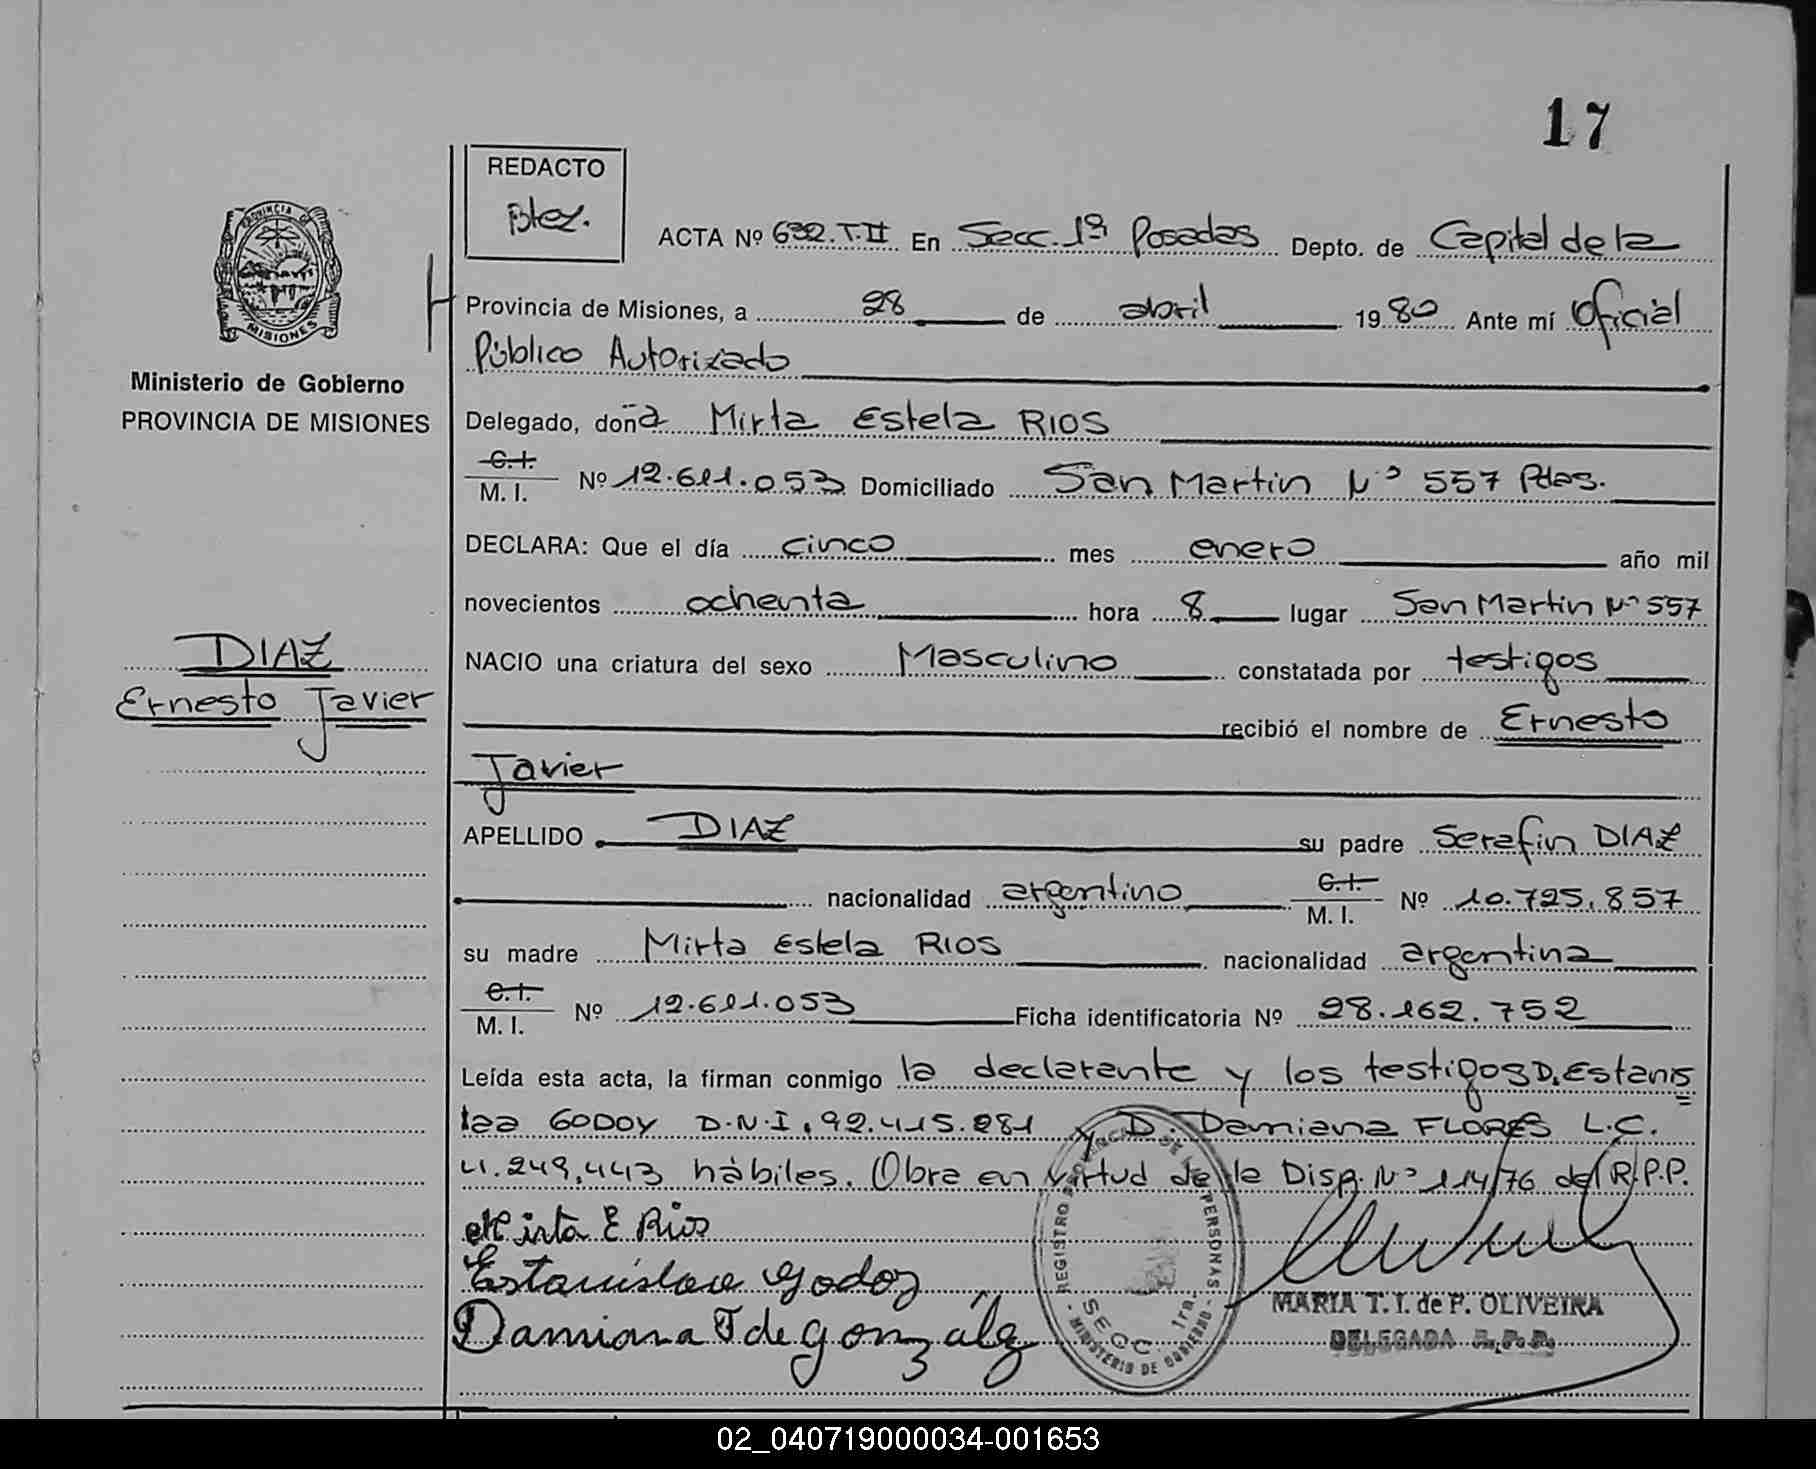 17
REDACTO
Btez.
ACTA Nº 632.T.II En Secc. 1ª Posadas Depto. de Capital de la
PROVINCIA DE
MISIONES
Provincia de Misiones, a 28 de abril 1980 Ante mí Oficial
Público Autorizado
Ministerio de Gobierno
PROVINCIA DE MISIONES
Delegado, doña Mirta Estela RIOS
C.I.
M. I. Nº 12.611.053 Domiciliado San Martin Nº 557 Pdas.
DECLARA: Que el día cinco mes enero año mil
novecientos ochenta hora 8 lugar San Martin Nº 557
DIAZ
Ernesto Javier
NACIO una criatura del sexo Masculino constatada por testigos
recibió el nombre de Ernesto
Javier
APELLIDO DIAZ su padre Serafin DIAZ
nacionalidad argentino C.I. M. I. Nº 10.725.857
su madre Mirta Estela RIOS nacionalidad argentina
C.I.
M. I. Nº 12.611.053 Ficha identificatoria Nº 28.162.752
Leída esta acta, la firman conmigo la declarante y los testigos D. Estanis
laa GODOY D.N.I. 92.415.281 y D. Damiana FLORES L.C.
4.249.443 hábiles. Obra en virtud de la Disp. Nº 114/76 del R.P.P.
Mirta E Rios
Estanislaa Godoy
Damiana F de Gonzalez
REGISTRO PROVINCIAL DE LAS PERSONAS
SECC. 1ra.
MINISTERIO DE GOBIERNO
MARIA T. I. de P. OLIVEIRA
DELEGADA R.P.P.
02_040719000034-001653